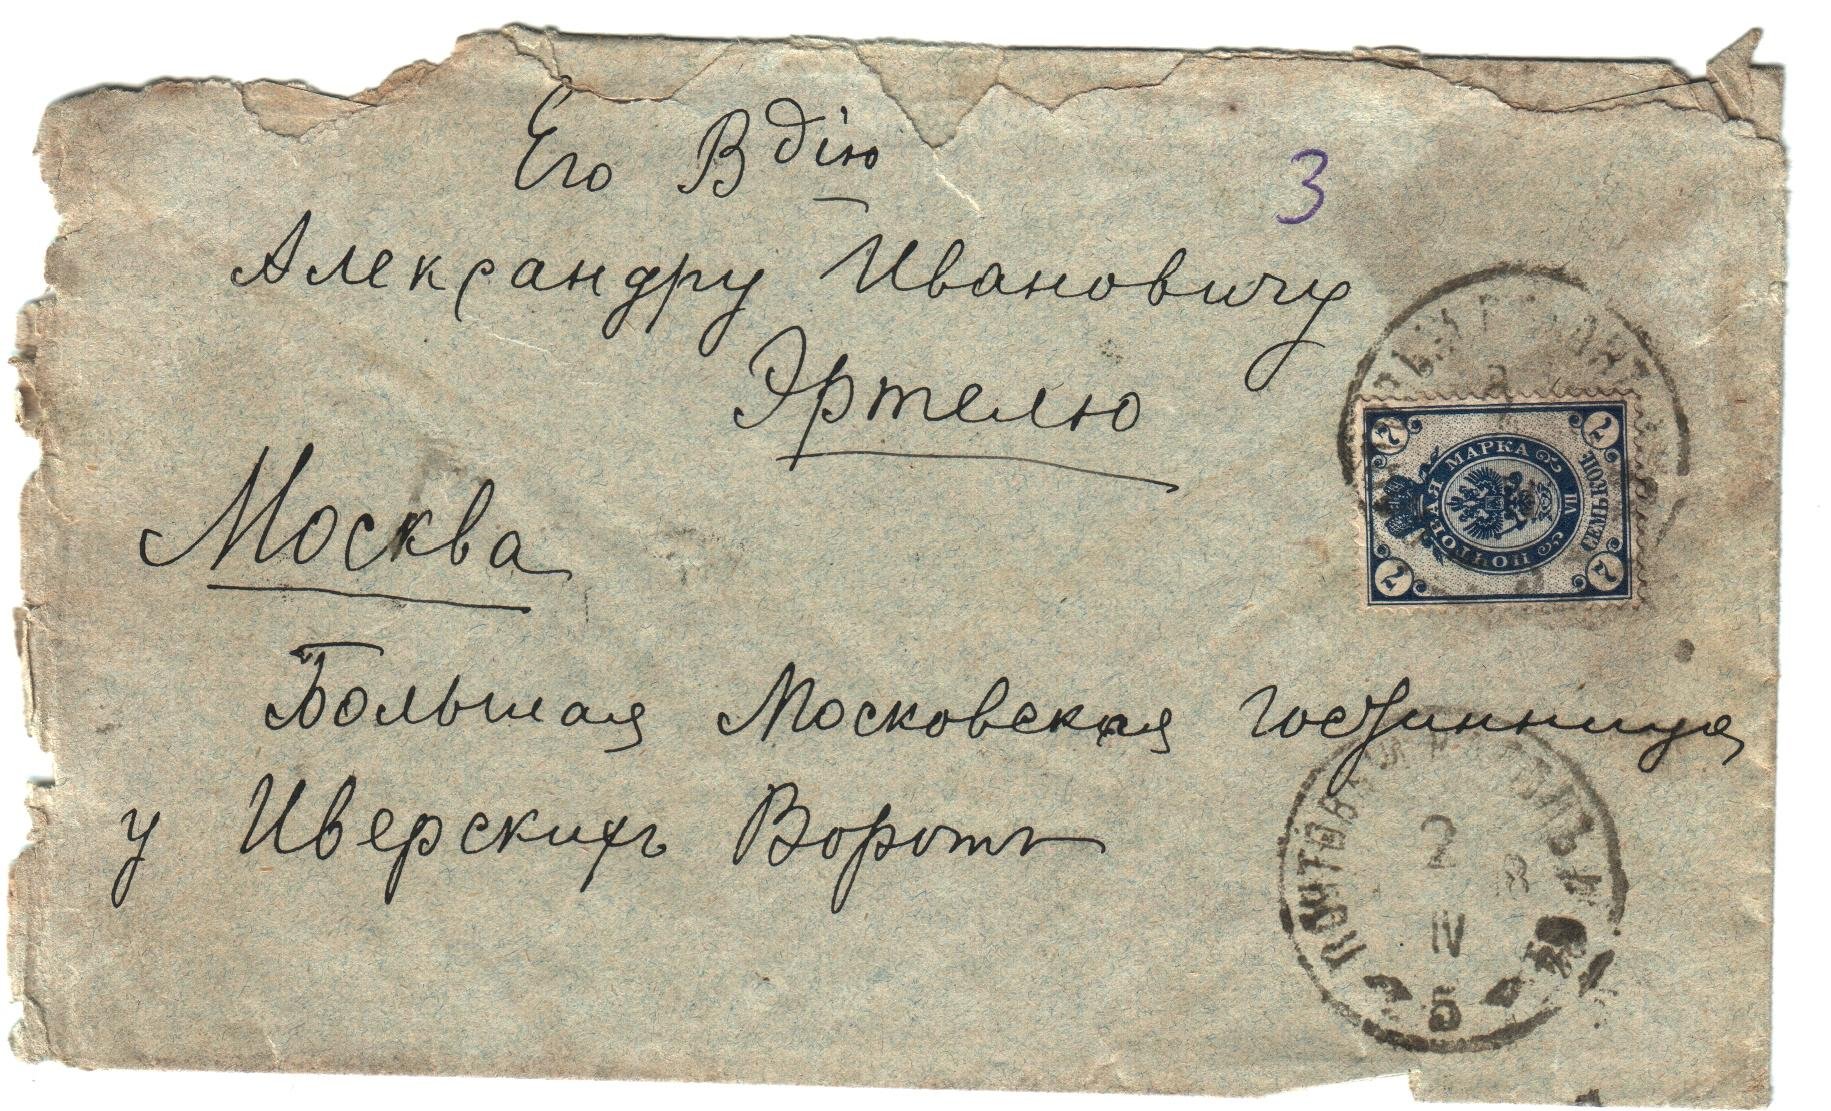 Его Вдію
3
Александру Ивановичу
Эртелю
Москва
Большая Московская гостинница
у Иверскихъ Воротъ
7 7 7 7
ПОЧТОВАЯ МАРКА
ЦѢНА
СЕМЬ КОП.
ПОЧТОВЫЙ ВАГОНЪ
2
IV
5